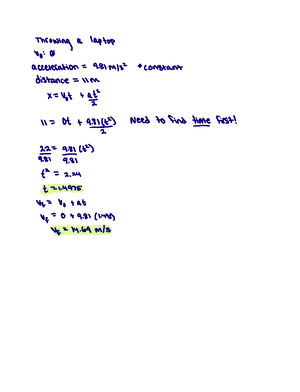 Throwing a laptop
V₀: 0
acceleration = 9.81 m/s² *constant
distance = 11m
x = V₀t + at²/2
11 = 0t + 9.81(t²)/2 Need to find time first!
22/9.81 = 9.81(t²)/9.81
t² = 2.24
t = 1.497s
Vf = V₀ + at
Vf = 0 + 9.81 (1.49)
Vf = 14.69 m/s